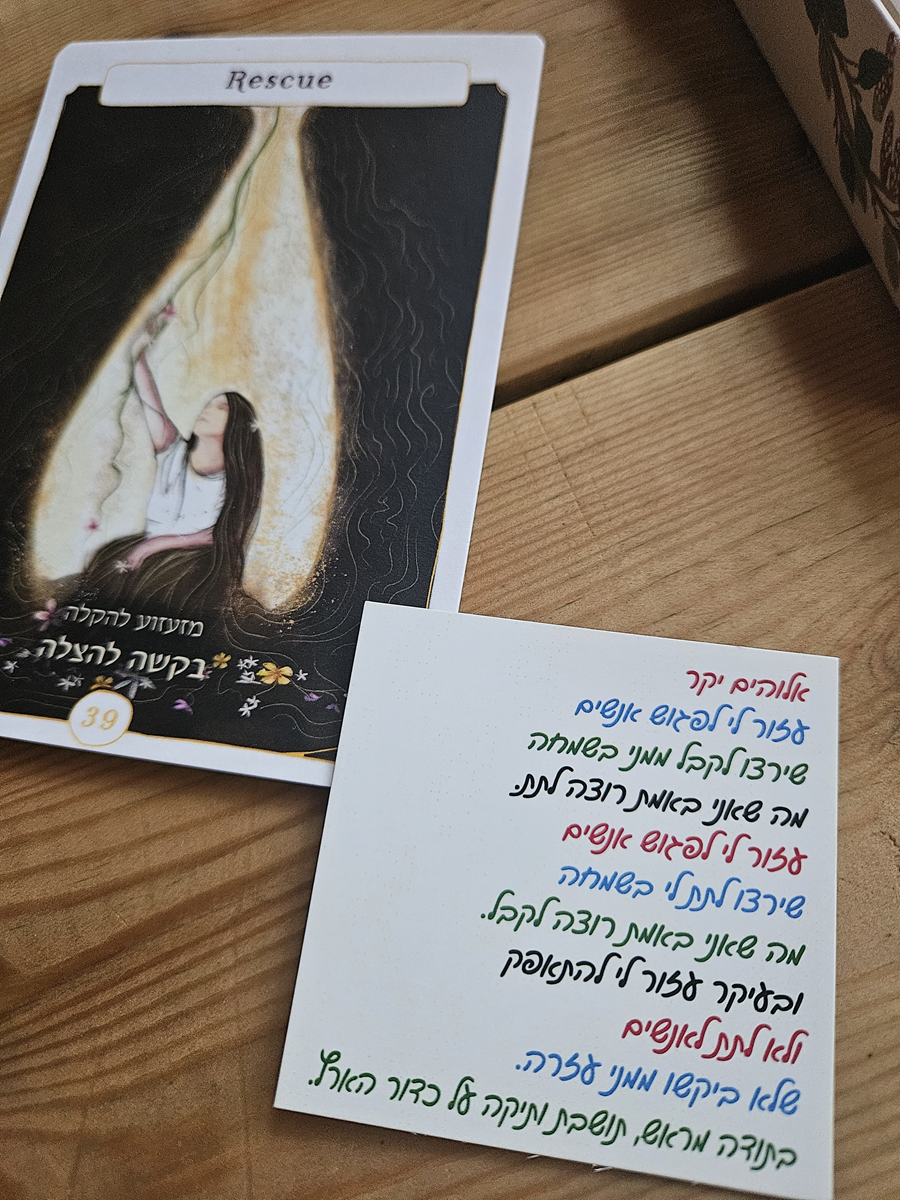 Rescue
מזעזוע להקלה
בקשה להצלה
39
אלוהים יקר
עזור לי לפגוש אנשים
שירצו לקבל ממני בשמחה
מה שאני באמת רוצה לתת.
עזור לי לפגוש אנשים
שירצו לתת לי בשמחה
מה שאני באמת רוצה לקבל.
ובעיקר עזור לי להתאפק
ולא לתת לאנשים
שלא ביקשו ממני עזרה.
בתודה מראש, תושבת ותיקה על כדור הארץ.